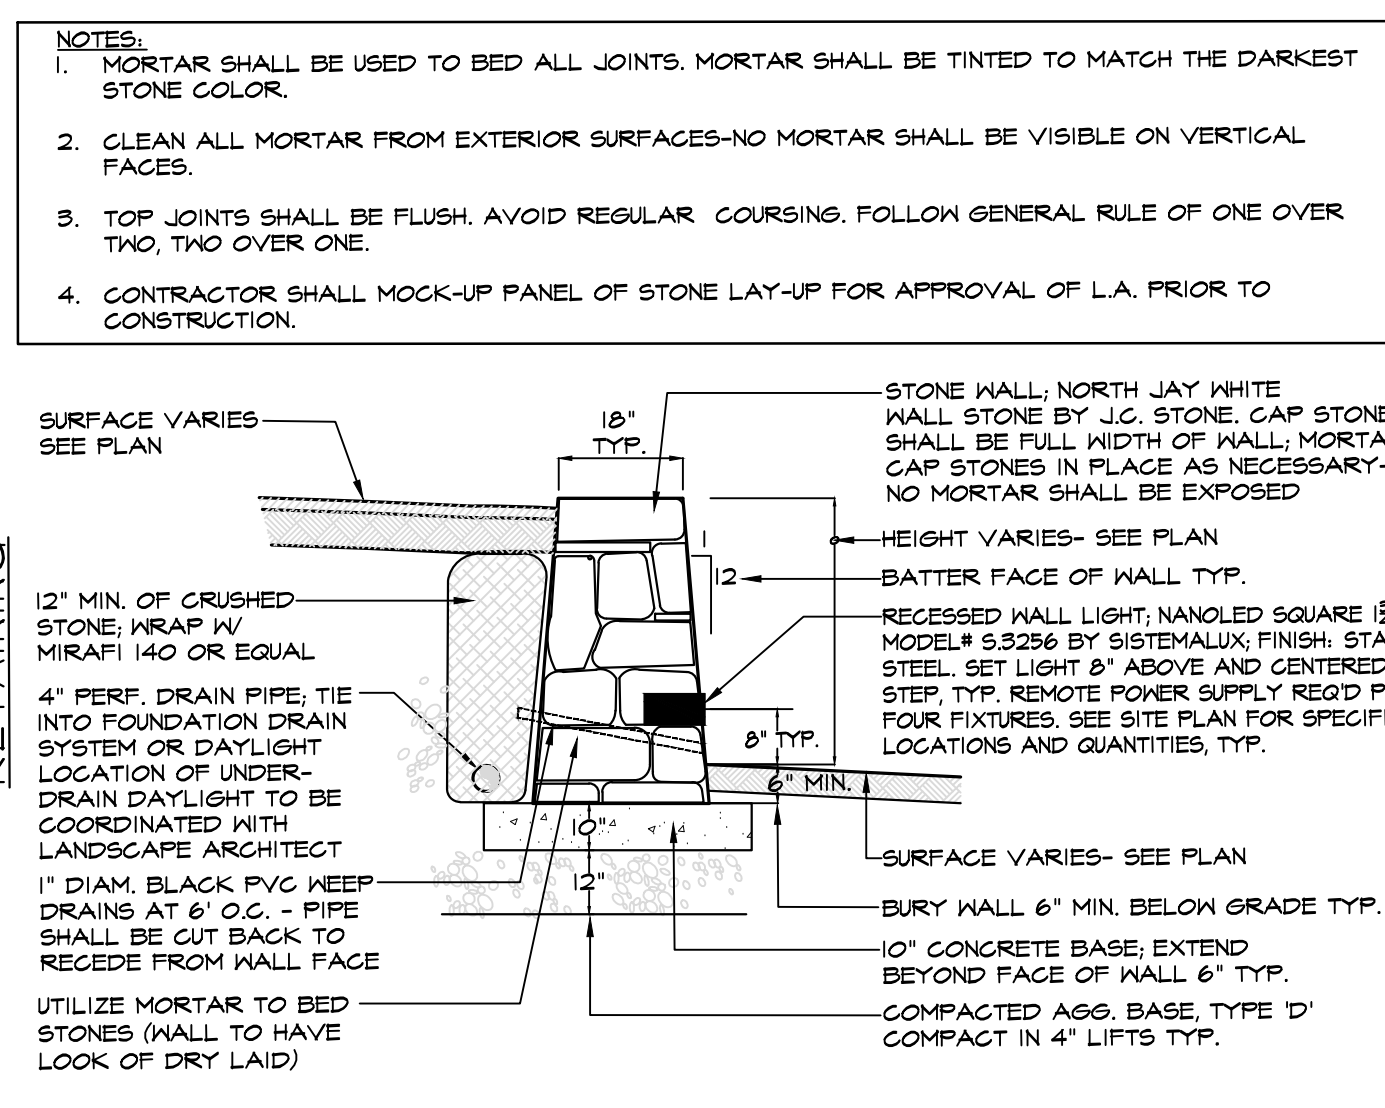 NOTES:
1. MORTAR SHALL BE USED TO BED ALL JOINTS. MORTAR SHALL BE TINTED TO MATCH THE DARKEST
STONE COLOR.
2. CLEAN ALL MORTAR FROM EXTERIOR SURFACES-NO MORTAR SHALL BE VISIBLE ON VERTICAL
FACES.
3. TOP JOINTS SHALL BE FLUSH. AVOID REGULAR COURSING. FOLLOW GENERAL RULE OF ONE OVER
TWO, TWO OVER ONE.
4. CONTRACTOR SHALL MOCK-UP PANEL OF STONE LAY-UP FOR APPROVAL OF L.A. PRIOR TO
CONSTRUCTION.
SURFACE VARIES
SEE PLAN
12" MIN. OF CRUSHED
STONE; WRAP W/
MIRAFI 140 OR EQUAL
4" PERF. DRAIN PIPE; TIE
INTO FOUNDATION DRAIN
SYSTEM OR DAYLIGHT
LOCATION OF UNDER-
DRAIN DAYLIGHT TO BE
COORDINATED WITH
LANDSCAPE ARCHITECT
1" DIAM. BLACK PVC WEEP
DRAINS AT 6' O.C. - PIPE
SHALL BE CUT BACK TO
RECEDE FROM WALL FACE
UTILIZE MORTAR TO BED
STONES (WALL TO HAVE
LOOK OF DRY LAID)
18"
TYP.
1
12
8" TYP.
6" MIN.
10"
12"
STONE WALL; NORTH JAY WHITE
WALL STONE BY J.C. STONE. CAP STONE
SHALL BE FULL WIDTH OF WALL; MORTA
CAP STONES IN PLACE AS NECESSARY-
NO MORTAR SHALL BE EXPOSED
HEIGHT VARIES- SEE PLAN
BATTER FACE OF WALL TYP.
RECESSED WALL LIGHT; NANOLED SQUARE
MODEL# S.3256 BY SISTEMALUX; FINISH: STA
STEEL. SET LIGHT 8" ABOVE AND CENTERED
STEP, TYP. REMOTE POWER SUPPLY REQ'D P
FOUR FIXTURES. SEE SITE PLAN FOR SPECIFI
LOCATIONS AND QUANTITIES, TYP.
SURFACE VARIES- SEE PLAN
BURY WALL 6" MIN. BELOW GRADE TYP.
10" CONCRETE BASE; EXTEND
BEYOND FACE OF WALL 6" TYP.
COMPACTED AGG. BASE, TYPE 'D'
COMPACT IN 4" LIFTS TYP.